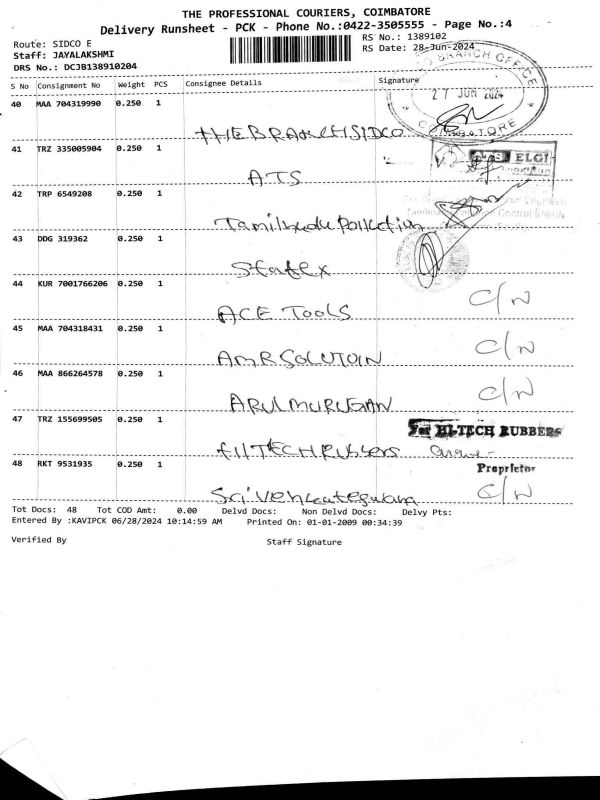 THE PROFESSIONAL COURIERS, COIMBATORE
Delivery Runsheet - PCK - Phone No.:0422-3505555 - Page No.:4
Route: SIDCO E
RS No.: 1389102
Staff: JAYALAKSHMI
RS Date: 28-Jun-2024
DRS No.: DCJB138910204
S No Consignment No Weight PCS Consignee Details Signature
BRANCH OFFICE
27 JUN 2024
40 MAA 704319990 0.250 1
THE BRANCH SIDCO
41 TRZ 335005904 0.250 1
ELGI
ATS
42 TRP 6549208 0.250 1
Control Board
Tamilnadu Pollution
43 DDG 319362 0.250 1
Statex
44 KUR 7001766206 0.250 1 C/N
ACE TOOLS
45 MAA 704318431 0.250 1 C/N
AMR SOLUTOIN
46 MAA 866264578 0.250 1 C/N
ARULMURUGAN
47 TRZ 155699505 0.250 1 For HI-TECH RUBBERS
HITECH Rubbers
48 RKT 9531935 0.250 1 Proprietor
Sri Venkateswara C/N
Tot Docs: 48 Tot COD Amt: 0.00 Delvd Docs: Non Delvd Docs: Delvy Pts:
Entered By :KAVIPCK 06/28/2024 10:14:59 AM Printed On: 01-01-2009 00:34:39
Verified By Staff Signature